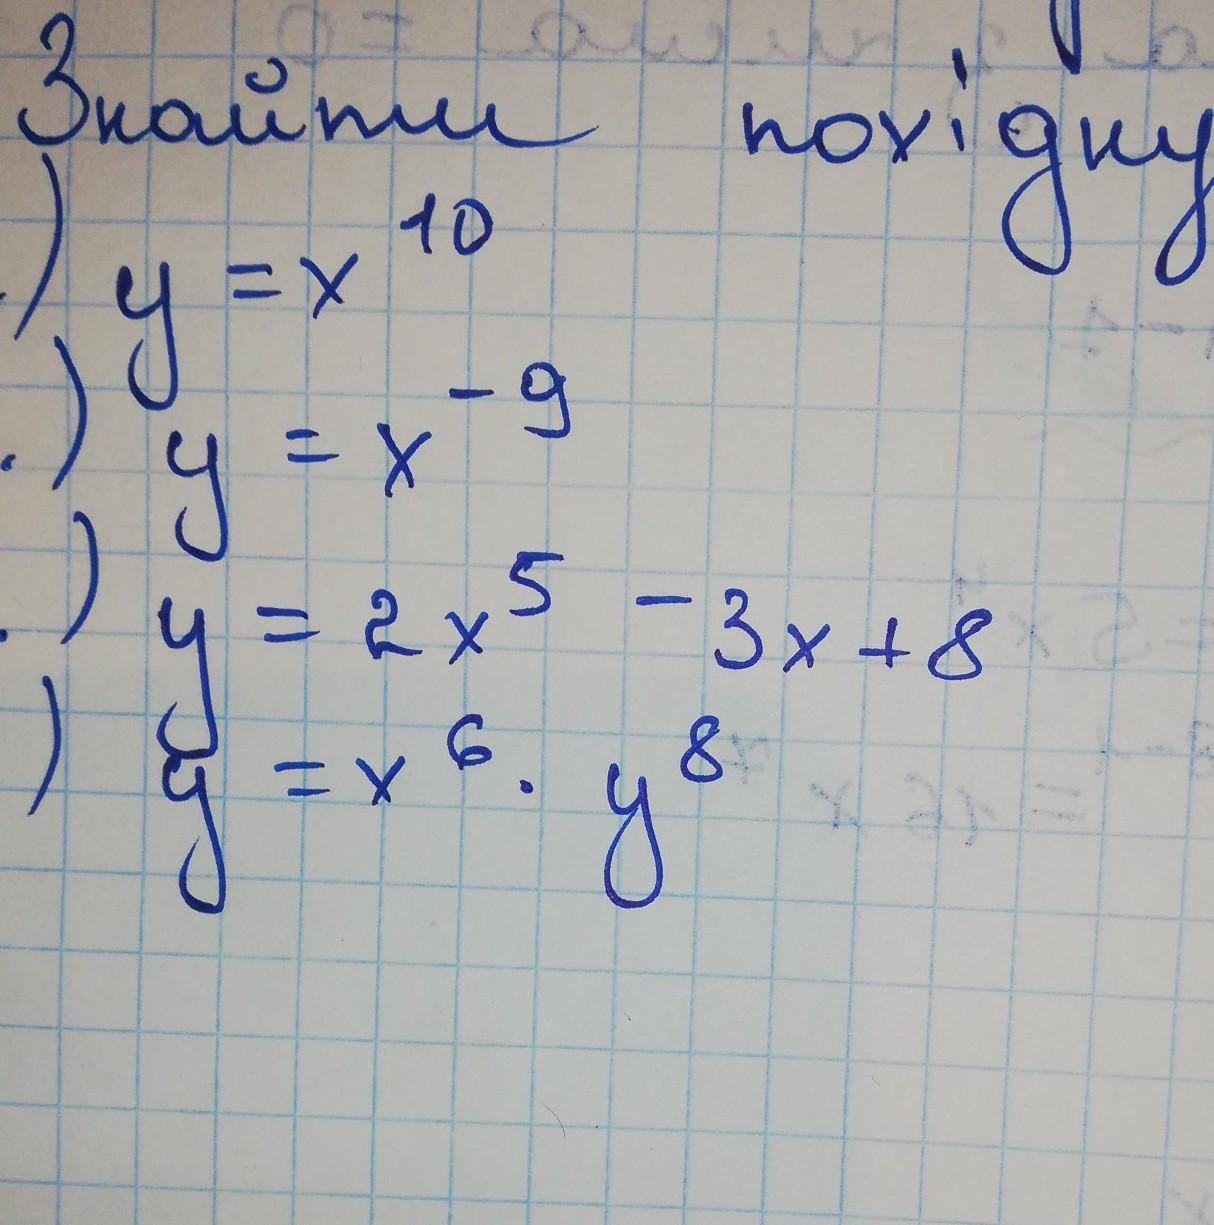 Знайти похідну
) y = x^10
.) y = x^-9
.) y = 2x^5 - 3x + 8
) y = x^6 · y^8